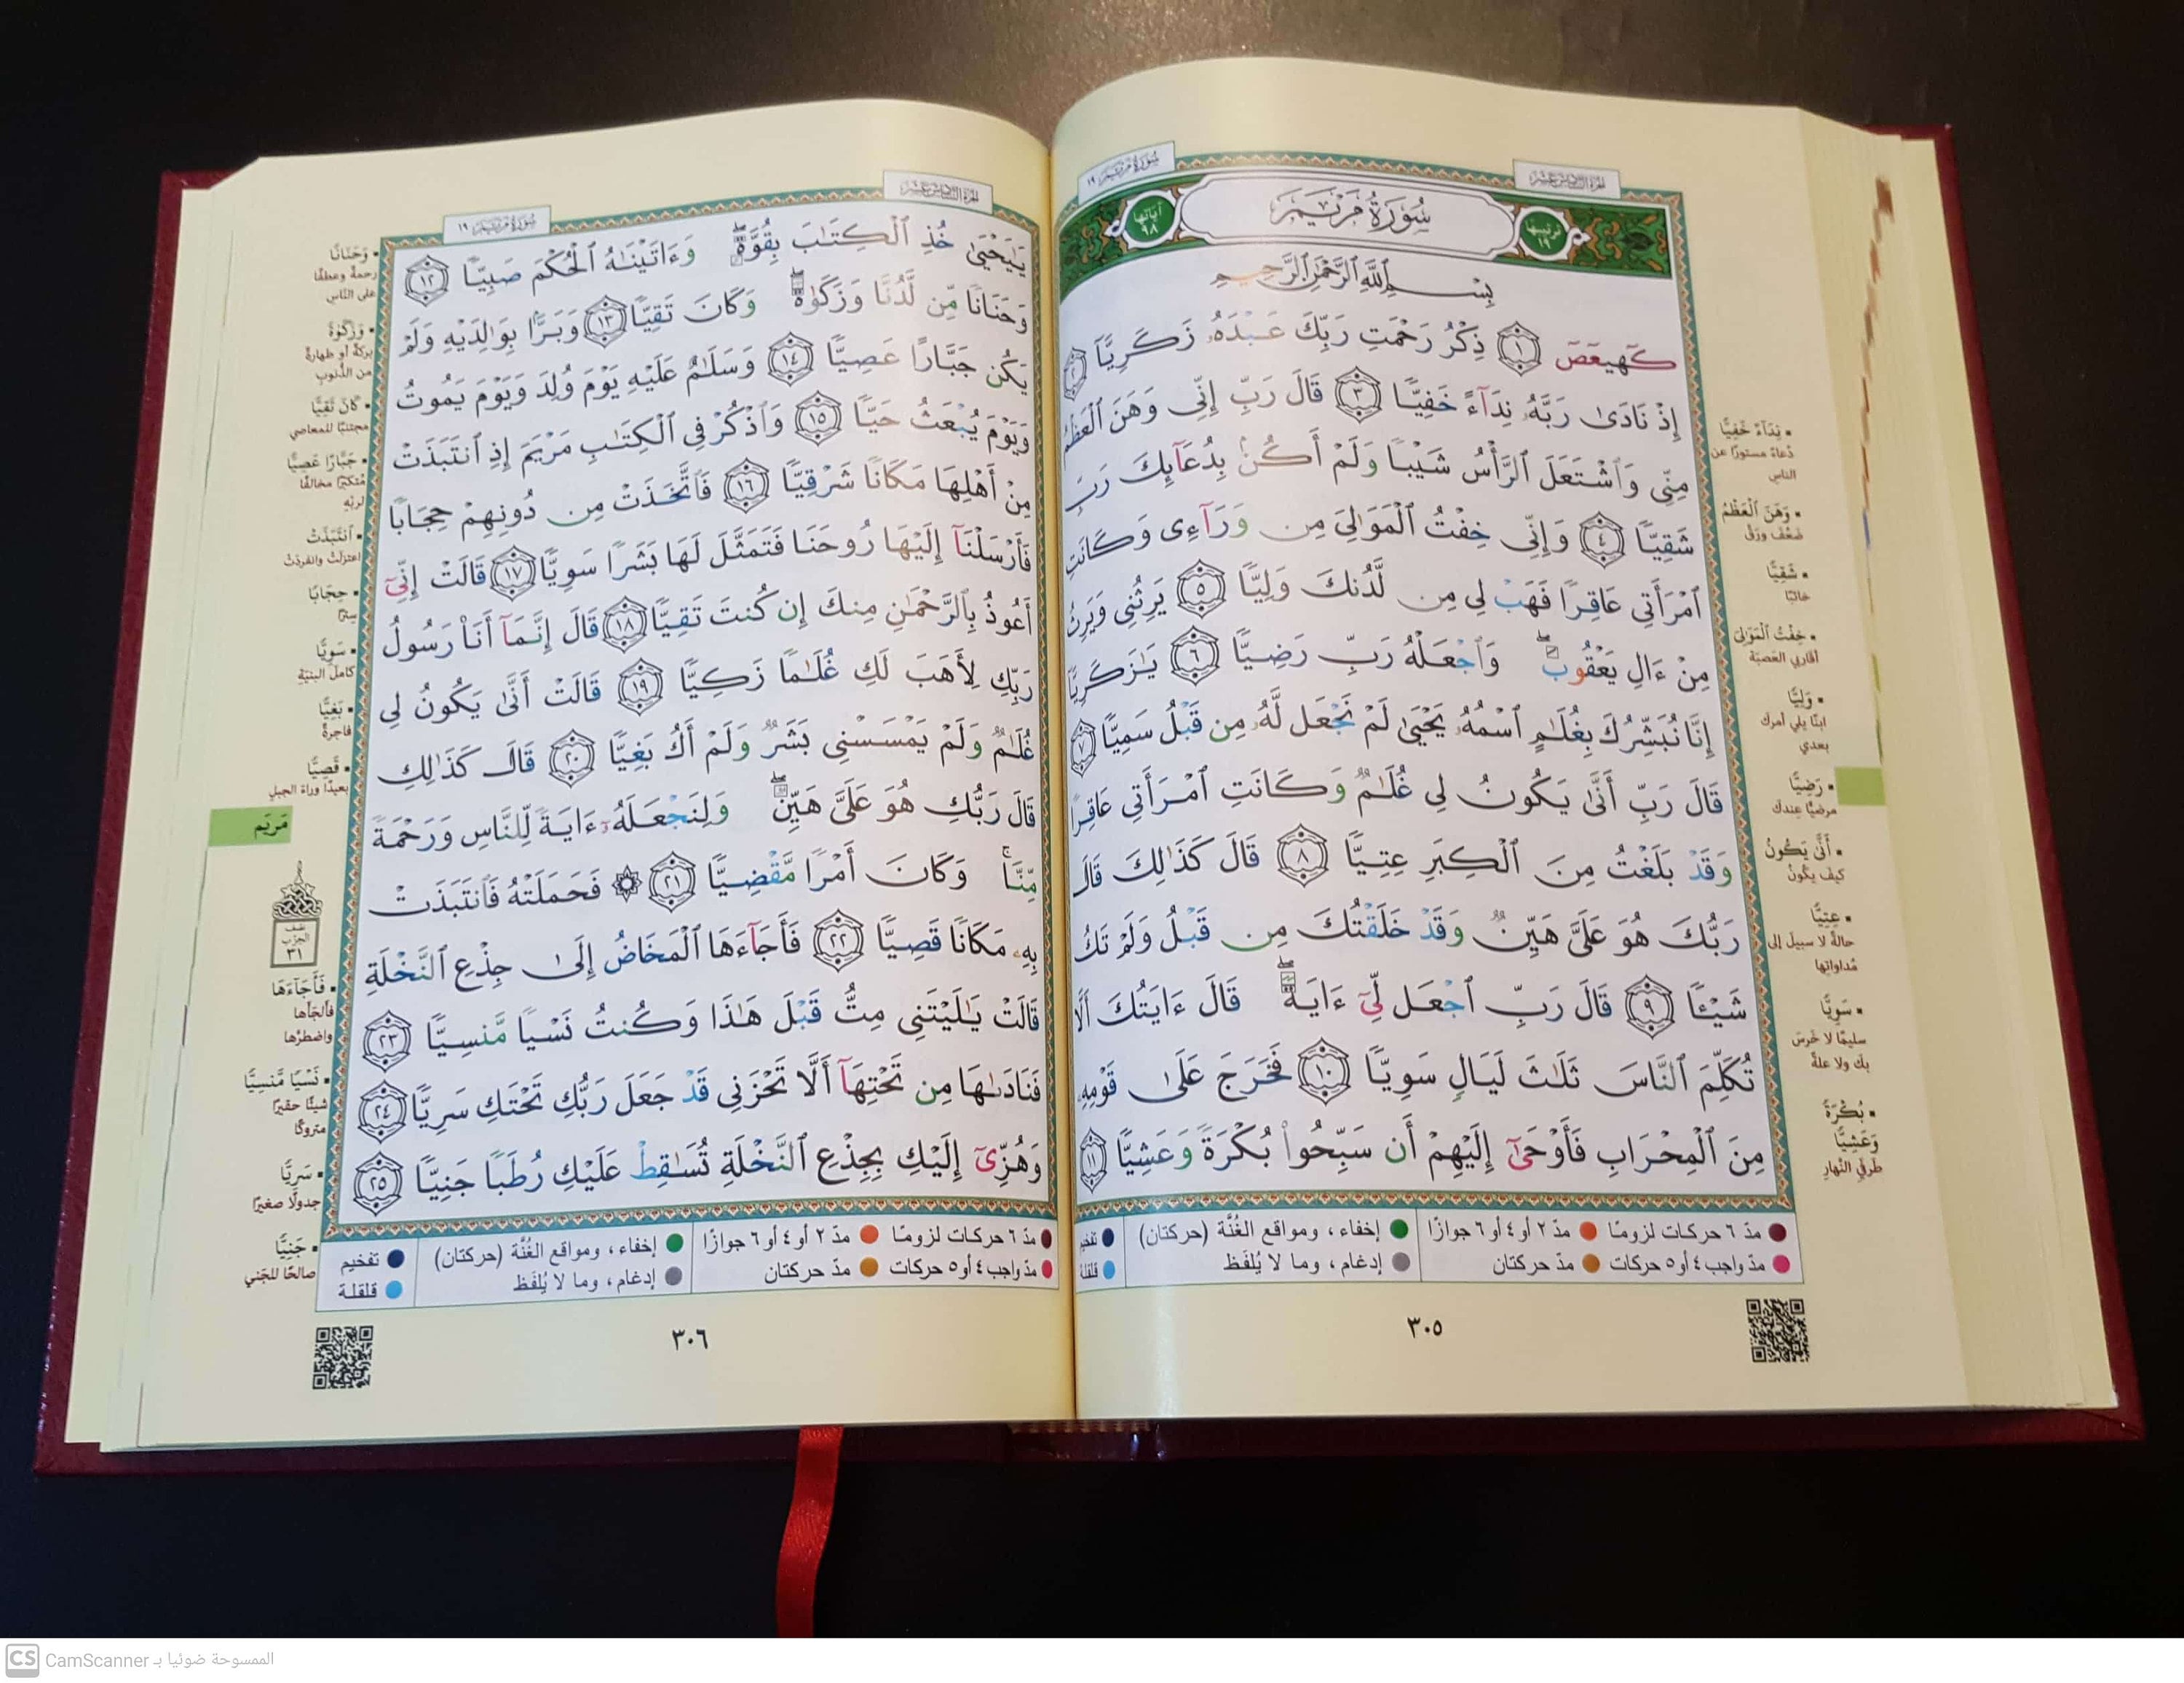 الجزء السادس عشر
سورة مريم ١٩
ترتيبها ١٩
سُورَةُ مَرْيَمَ
آياتها ٩٨
بِسْمِ ٱللَّهِ ٱلرَّحْمَٰنِ ٱلرَّحِيمِ
كٓهيعٓصٓ ١ ذِكْرُ رَحْمَتِ رَبِّكَ عَبْدَهُۥ زَكَرِيَّآ ٢
إِذْ نَادَىٰ رَبَّهُۥ نِدَآءً خَفِيًّا ٣ قَالَ رَبِّ إِنِّى وَهَنَ ٱلْعَظْمُ
مِنِّى وَٱشْتَعَلَ ٱلرَّأْسُ شَيْبًا وَلَمْ أَكُنۢ بِدُعَآئِكَ رَبِّ
شَقِيًّا ٤ وَإِنِّى خِفْتُ ٱلْمَوَٰلِىَ مِن وَرَآءِى وَكَانَتِ
ٱمْرَأَتِى عَاقِرًا فَهَبْ لِى مِن لَّدُنكَ وَلِيًّا ٥ يَرِثُنِى وَيَرِثُ
مِنْ ءَالِ يَعْقُوبَ ۖ وَٱجْعَلْهُ رَبِّ رَضِيًّا ٦ يَٰزَكَرِيَّآ
إِنَّا نُبَشِّرُكَ بِغُلَٰمٍ ٱسْمُهُۥ يَحْيَىٰ لَمْ نَجْعَل لَّهُۥ مِن قَبْلُ سَمِيًّا ٧
قَالَ رَبِّ أَنَّىٰ يَكُونُ لِى غُلَٰمٌ وَكَانَتِ ٱمْرَأَتِى عَاقِرًا
وَقَدْ بَلَغْتُ مِنَ ٱلْكِبَرِ عِتِيًّا ٨ قَالَ كَذَٰلِكَ قَالَ
رَبُّكَ هُوَ عَلَىَّ هَيِّنٌ وَقَدْ خَلَقْتُكَ مِن قَبْلُ وَلَمْ تَكُ
شَيْـًٔا ٩ قَالَ رَبِّ ٱجْعَل لِّىٓ ءَايَةً ۚ قَالَ ءَايَتُكَ أَلَّا
تُكَلِّمَ ٱلنَّاسَ ثَلَٰثَ لَيَالٍ سَوِيًّا ١٠ فَخَرَجَ عَلَىٰ قَوْمِهِۦ
مِنَ ٱلْمِحْرَابِ فَأَوْحَىٰٓ إِلَيْهِمْ أَن سَبِّحُوا۟ بُكْرَةً وَعَشِيًّا ١١
نِدَآءً خَفِيًّا
دُعاءً مستورًا عن
الناس
وَهَنَ ٱلْعَظْمُ
ضَعُفَ ورَقَّ
شَقِيًّا
خائبًا
خِفْتُ ٱلْمَوَٰلِىَ
أقاربي العَصَبَة
وَلِيًّا
ابنًا يلي أمرك
بعدي
رَضِيًّا
مرضيًّا عندك
أَنَّىٰ يَكُونُ
كيف يكونُ
عِتِيًّا
حالةً لا سبيل إلى
مُداواتها
سَوِيًّا
سليمًا لا خَرَسَ
بك ولا علةَ
بُكْرَةً
وَعَشِيًّا
طرفَي النَّهارِ
مدّ ٦ حركات لزومًا مدّ ٢ أو ٤ أو ٦ جوازًا إخفاء، ومواقع الغُنَّة (حركتان)
مدّ واجب ٤ أو ٥ حركات مدّ حركتان إدغام، وما لا يُلفَظ قلقلة
٣٠٥
الجزء السادس عشر
سورة مريم ١٩
يَٰيَحْيَىٰ خُذِ ٱلْكِتَٰبَ بِقُوَّةٍ ۖ وَءَاتَيْنَٰهُ ٱلْحُكْمَ صَبِيًّا ١٢
وَحَنَانًا مِّن لَّدُنَّا وَزَكَوٰةً ۖ وَكَانَ تَقِيًّا ١٣ وَبَرًّۢا بِوَٰلِدَيْهِ وَلَمْ
يَكُن جَبَّارًا عَصِيًّا ١٤ وَسَلَٰمٌ عَلَيْهِ يَوْمَ وُلِدَ وَيَوْمَ يَمُوتُ
وَيَوْمَ يُبْعَثُ حَيًّا ١٥ وَٱذْكُرْ فِى ٱلْكِتَٰبِ مَرْيَمَ إِذِ ٱنتَبَذَتْ
مِنْ أَهْلِهَا مَكَانًا شَرْقِيًّا ١٦ فَٱتَّخَذَتْ مِن دُونِهِمْ حِجَابًا
فَأَرْسَلْنَآ إِلَيْهَا رُوحَنَا فَتَمَثَّلَ لَهَا بَشَرًا سَوِيًّا ١٧ قَالَتْ إِنِّىٓ
أَعُوذُ بِٱلرَّحْمَٰنِ مِنكَ إِن كُنتَ تَقِيًّا ١٨ قَالَ إِنَّمَآ أَنَا۠ رَسُولُ
رَبِّكِ لِأَهَبَ لَكِ غُلَٰمًا زَكِيًّا ١٩ قَالَتْ أَنَّىٰ يَكُونُ لِى
غُلَٰمٌ وَلَمْ يَمْسَسْنِى بَشَرٌ وَلَمْ أَكُ بَغِيًّا ٢٠ قَالَ كَذَٰلِكِ
قَالَ رَبُّكِ هُوَ عَلَىَّ هَيِّنٌ ۖ وَلِنَجْعَلَهُۥٓ ءَايَةً لِّلنَّاسِ وَرَحْمَةً
مِّنَّا ۚ وَكَانَ أَمْرًا مَّقْضِيًّا ٢١ ۞ فَحَمَلَتْهُ فَٱنتَبَذَتْ
بِهِۦ مَكَانًا قَصِيًّا ٢٢ فَأَجَآءَهَا ٱلْمَخَاضُ إِلَىٰ جِذْعِ ٱلنَّخْلَةِ
قَالَتْ يَٰلَيْتَنِى مِتُّ قَبْلَ هَٰذَا وَكُنتُ نَسْيًا مَّنسِيًّا ٢٣
فَنَادَىٰهَا مِن تَحْتِهَآ أَلَّا تَحْزَنِى قَدْ جَعَلَ رَبُّكِ تَحْتَكِ سَرِيًّا ٢٤
وَهُزِّىٓ إِلَيْكِ بِجِذْعِ ٱلنَّخْلَةِ تُسَٰقِطْ عَلَيْكِ رُطَبًا جَنِيًّا ٢٥
وَحَنَانًا
رحمةً وعطفًا
على النَّاس
وَزَكَوٰةً
بركةً أو طهارةً
من الذُّنوبِ
كَانَ تَقِيًّا
مجتنبًا للمعاصي
جَبَّارًا عَصِيًّا
مُتكبرًا مخالفًا
لربِّه
ٱنتَبَذَتْ
اعتزلتْ وانفردتْ
حِجَابًا
سِترًا
سَوِيًّا
كاملَ البنيَةِ
بَغِيًّا
فاجرةً
قَصِيًّا
بعيدًا وراءَ الجبلِ
مَريَم
نصف
الحزب
٣١
فَأَجَآءَهَا
فألجأها
واضطرَّها
نَسْيًا مَّنسِيًّا
شيئًا حقيرًا
متروكًا
سَرِيًّا
جدولًا صغيرًا
جَنِيًّا
صالحًا للجَني
مدّ ٦ حركات لزومًا مدّ ٢ أو ٤ أو ٦ جوازًا إخفاء، ومواقع الغُنَّة (حركتان) تفخيم
مدّ واجب ٤ أو ٥ حركات مدّ حركتان إدغام، وما لا يُلفَظ قلقلة
٣٠٦
CS CamScanner الممسوحة ضوئيا بـ